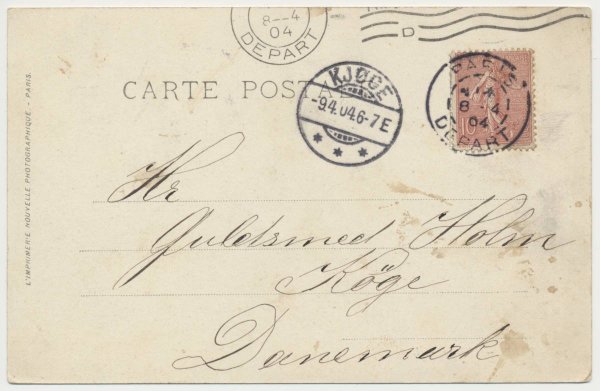 8--4
04
DEPART
D
CARTE POSTALE
KJØGE
-9.4.04.6-7 E
PARIS
8-4
04
DEPART
10
Hr
Guldsmed Holm
Köge
Danemark
L'IMPRIMERIE NOUVELLE PHOTOGRAPHIQUE - PARIS.